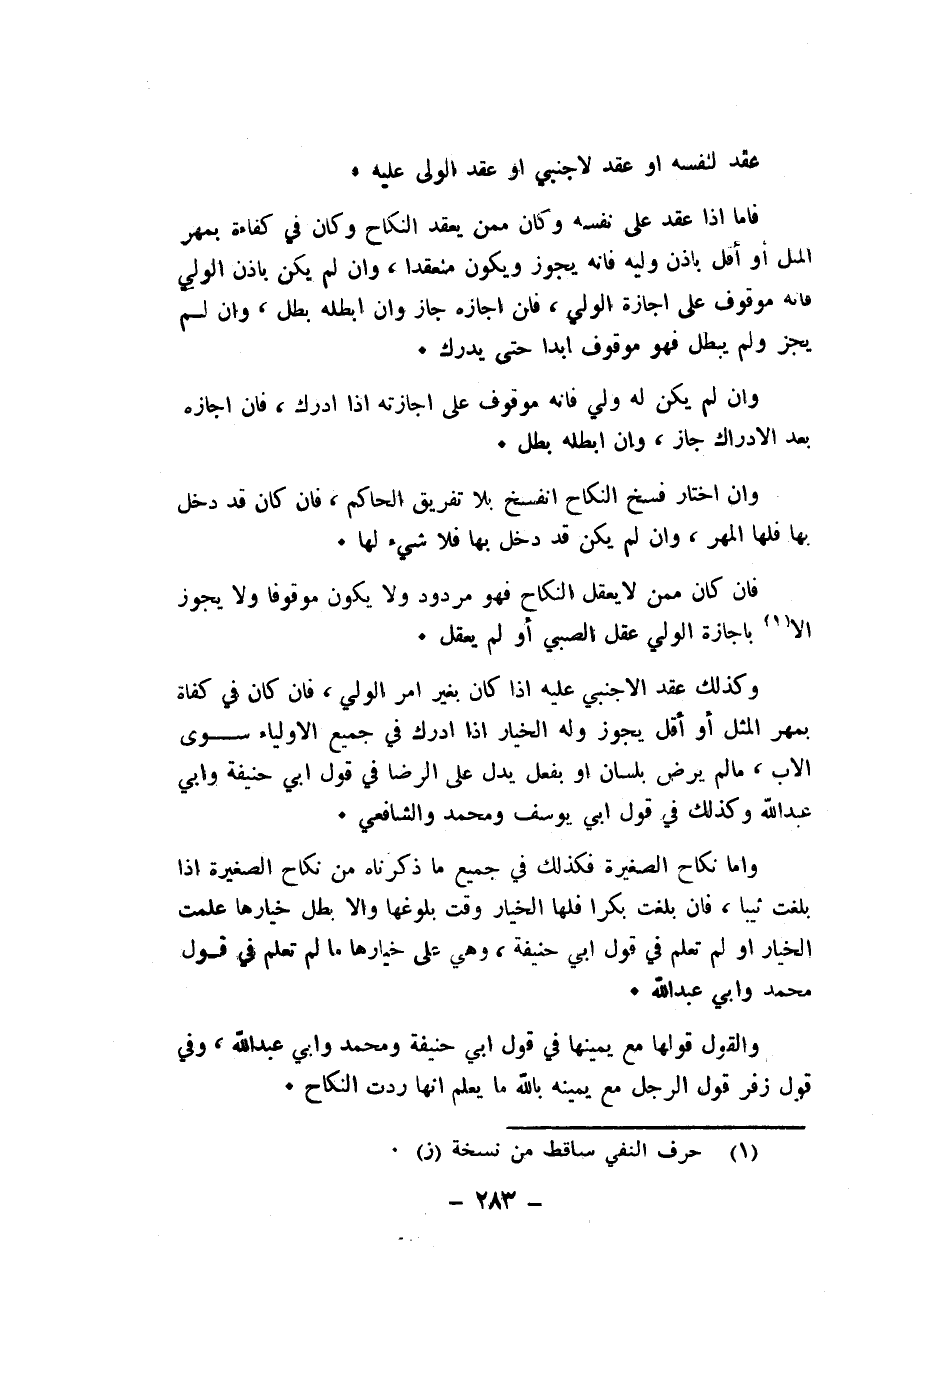 عقد لنفسه او عقد لاجنبي او عقد الولى عليه .
فاما اذا عقد على نفسه وكان ممن يعقد النكاح وكان في كفاءة بمهر
المثل أو أقل باذن وليه فانه يجوز ويكون منعقدا ، وان لم يكن باذن الولي
فانه موقوف على اجازة الولي ، فان اجازه جاز وان ابطله بطل ، وان لــم
يجز ولم يبطل فهو موقوف ابدا حتى يدرك .
وان لم يكن له ولي فانه موقوف على اجازته اذا ادرك ، فان اجازه
بعد الادراك جاز ، وان ابطله بطل .
وان اختار فسخ النكاح انفسخ بلا تفريق الحاكم ، فان كان قد دخل
بها فلها المهر ، وان لم يكن قد دخل بها فلا شيء لها .
فان كان ممن لايعقل النكاح فهو مردود ولا يكون موقوفا ولا يجوز
الا(١) باجازة الولي عقل الصبي أو لم يعقل .
وكذلك عقد الاجنبي عليه اذا كان بغير امر الولي ، فان كان في كفاة
بمهر المثل أو أقل يجوز وله الخيار اذا ادرك في جميع الاولياء ســـوى
الاب ، مالم يرض بلسان او بفعل يدل على الرضا في قول ابي حنيفة وابي
عبدالله وكذلك في قول ابي يوسف ومحمد والشافعي .
واما نكاح الصغيرة فكذلك في جميع ما ذكرناه من نكاح الصغيرة اذا
بلغت ثيبا ، فان بلغت بكرا فلها الخيار وقت بلوغها والا بطل خيارها علمت
الخيار او لم تعلم في قول ابي حنيفة ، وهي على خيارها ما لم تعلم في قــول
محمد وابي عبدالله .
والقول قولها مع يمينها في قول ابي حنيفة ومحمد وابي عبدالله ، وفي
قول زفر قول الرجل مع يمينه بالله ما يعلم انها ردت النكاح .
(١) حرف النفي ساقط من نسخة (ز) .
- ٢٨٣ -